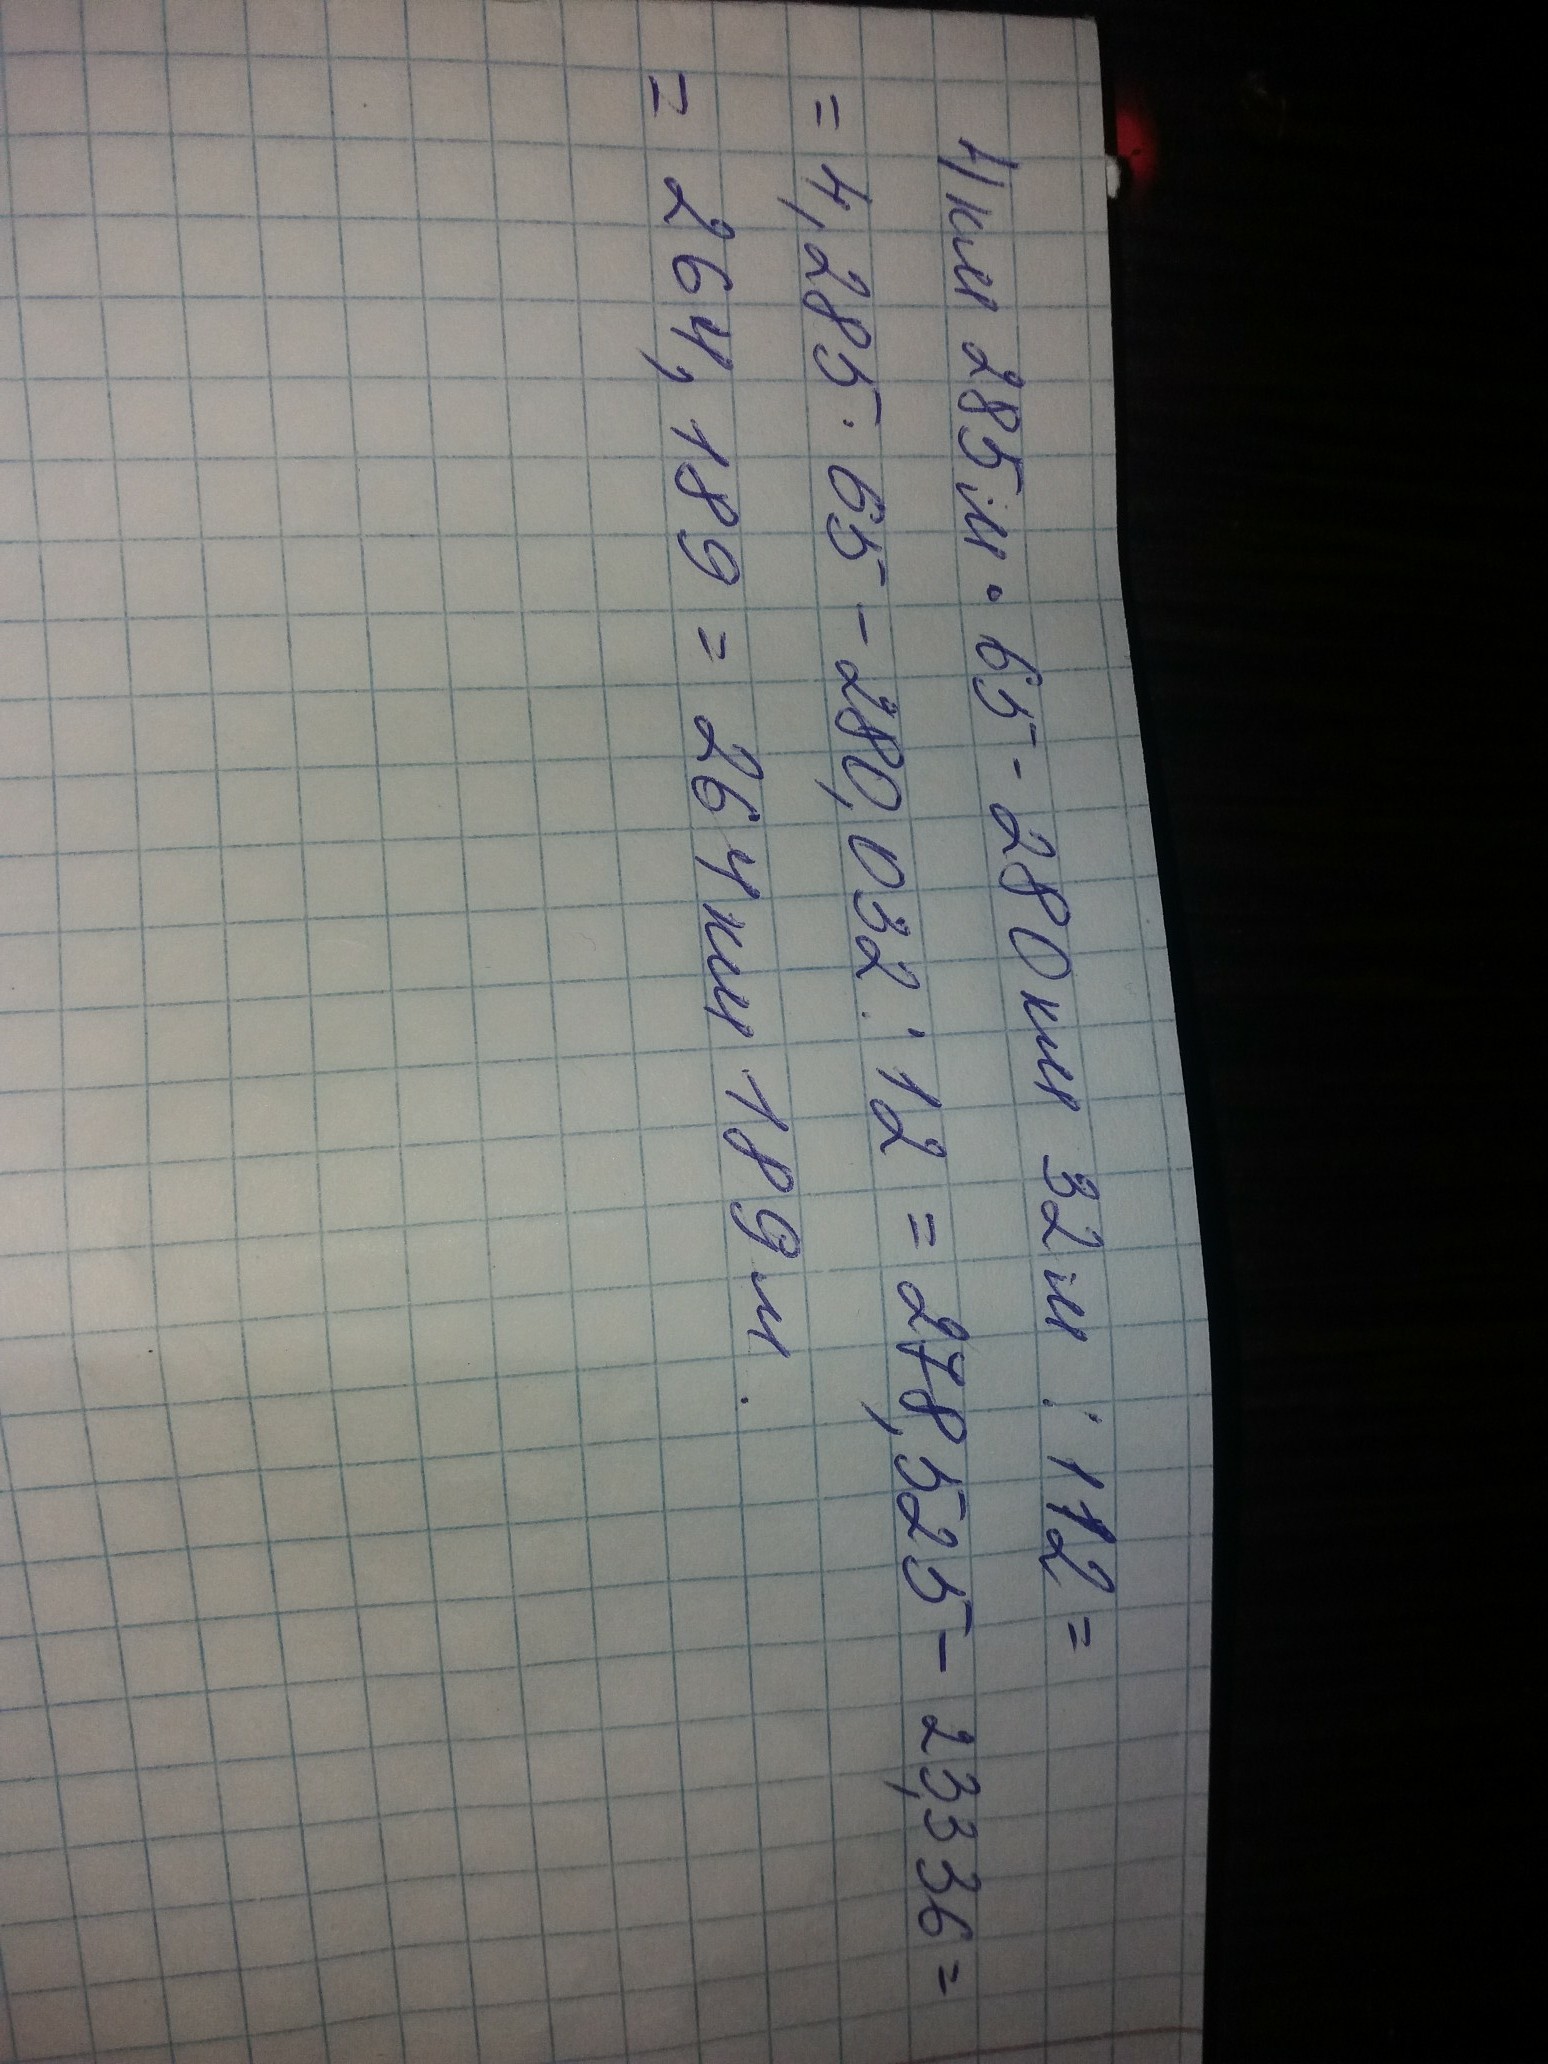 4 км 285 м · 65 - 280 км 32 м : 12 =
= 4,285 · 65 - 280,032 : 12 = 278,525 - 23,336 =
= 264,189 = 264 км 189 м.